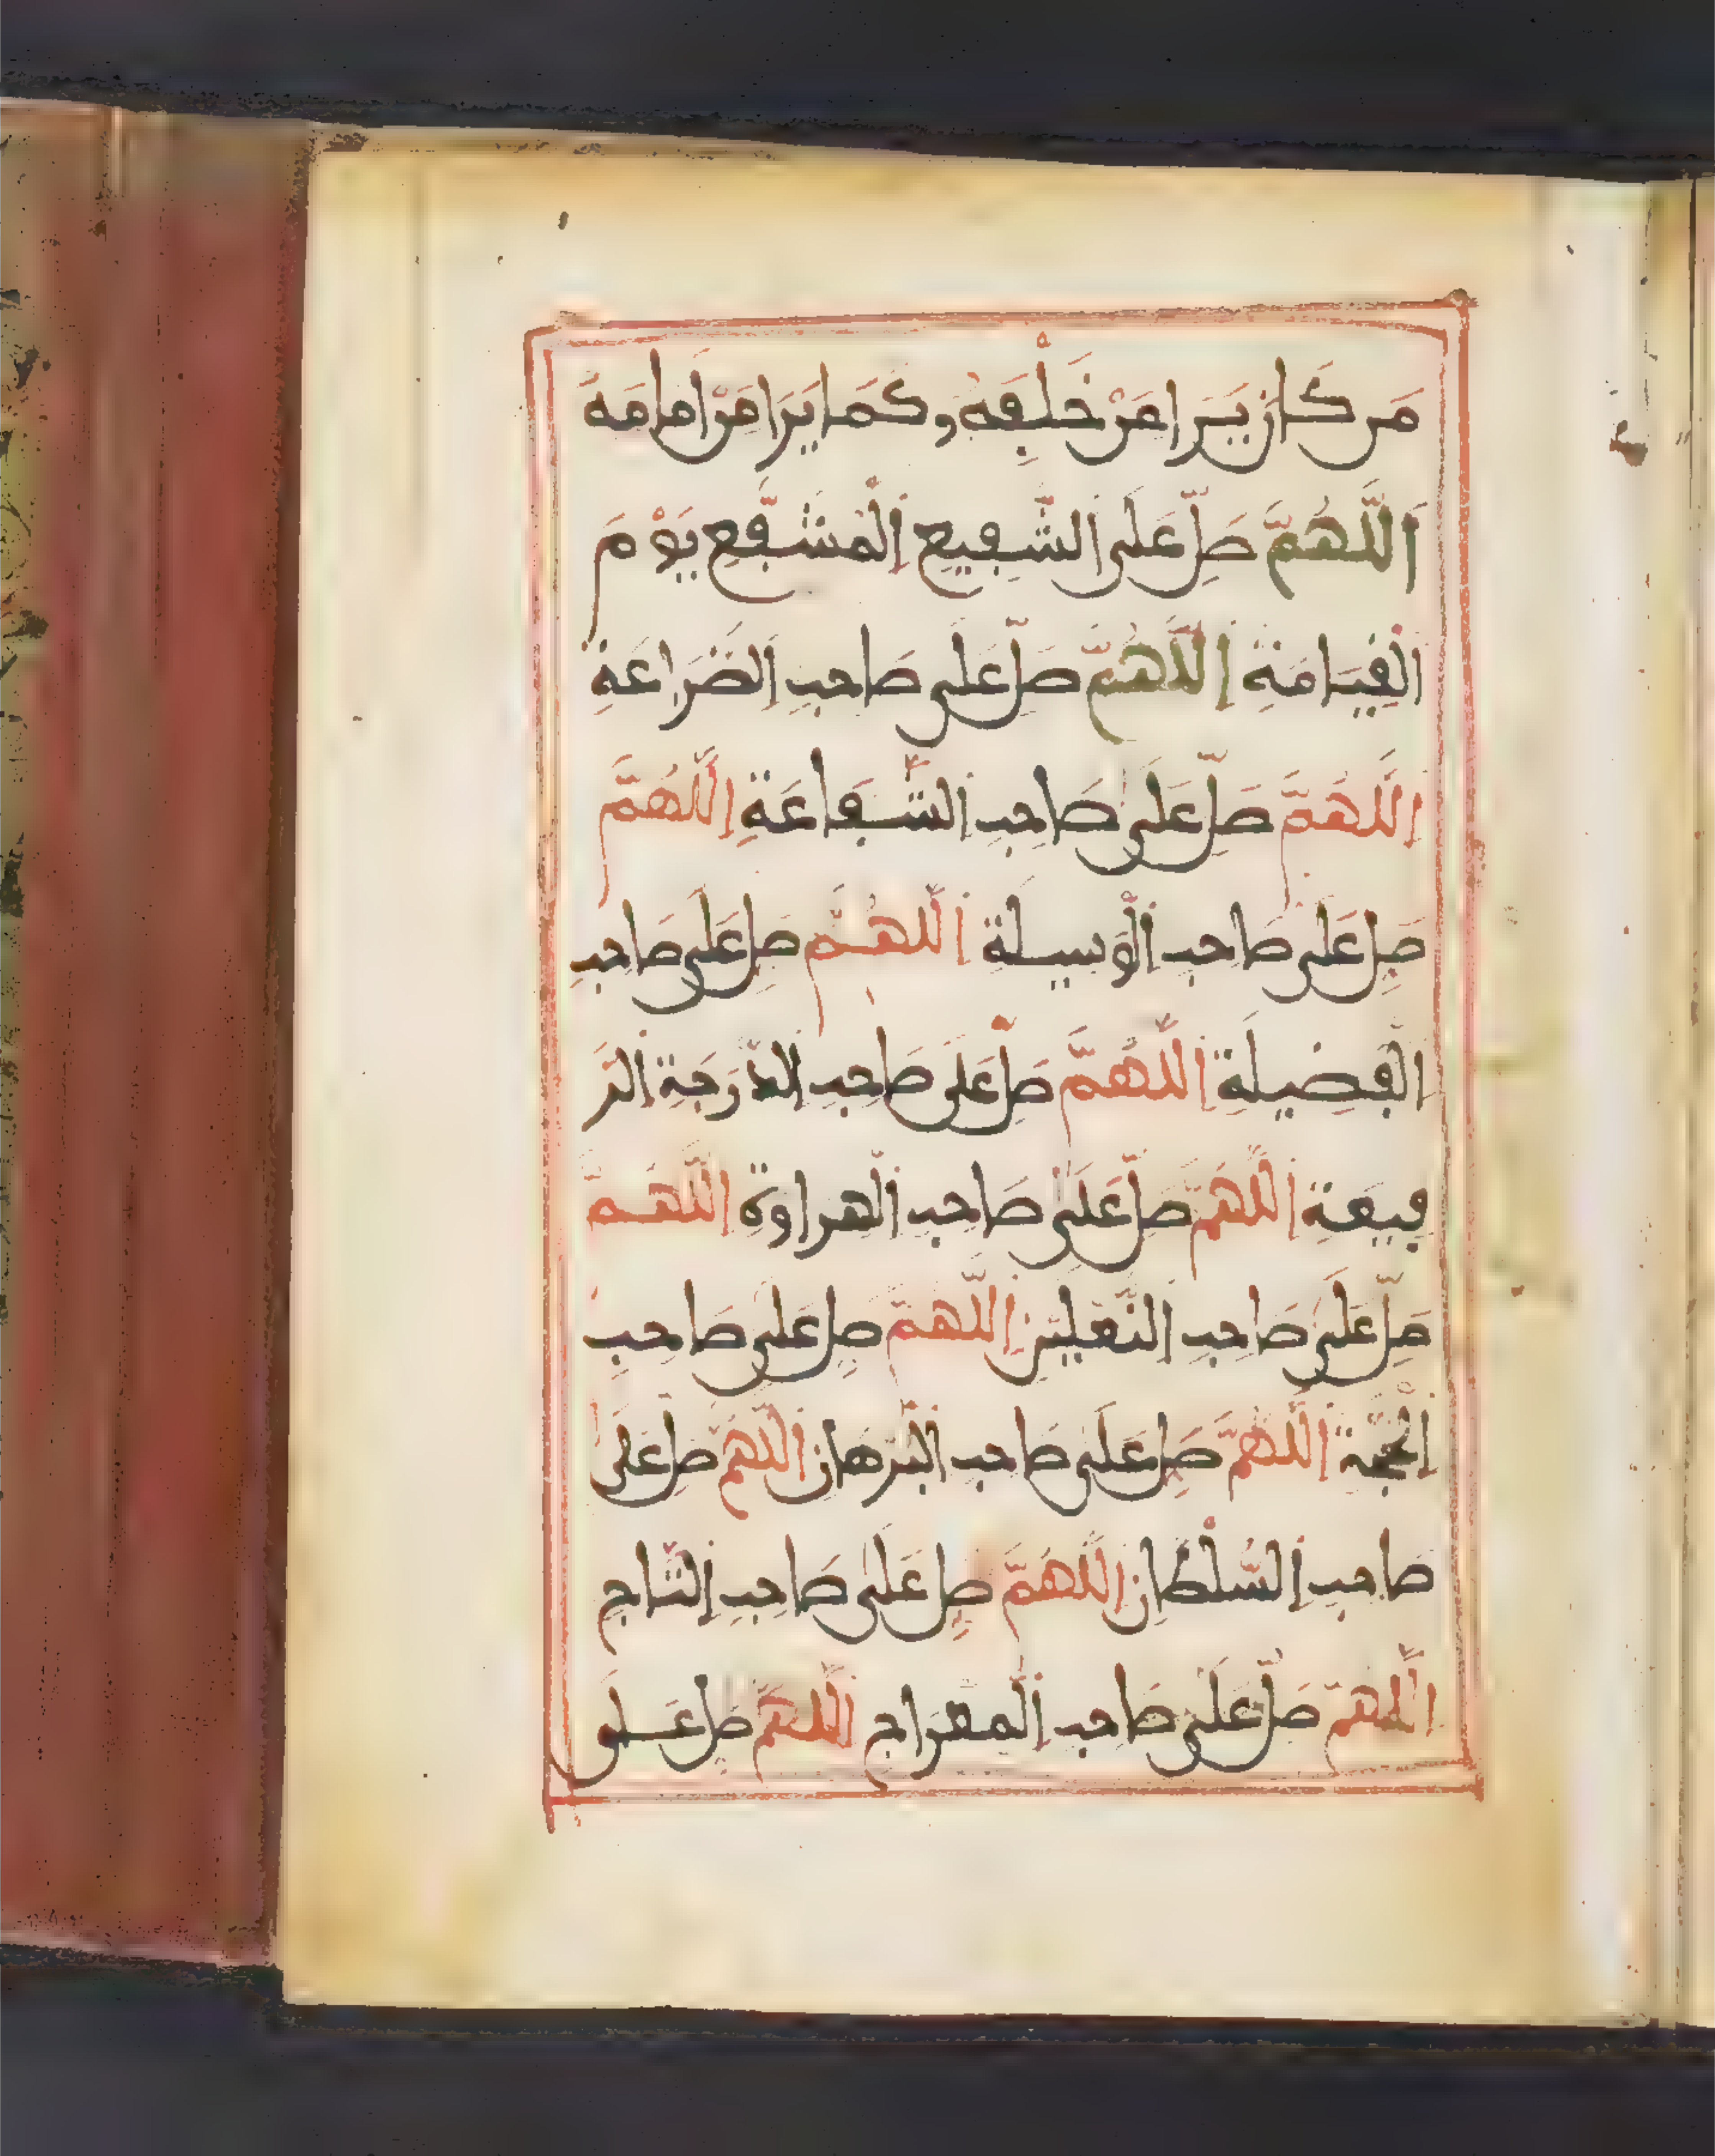 مَن كَانَ يَرَا مَنْ خَلْفِهِ وكَمَا يَرَا مَنْ أمَامَهُ
اَللَّهُمَّ صَلِّ عَلَى الشَّفِيعِ الْمُشَفَّعِ يَوْمَ
الْقِيَامَةِ اَللَّهُمَّ صَلِّ عَلَى صَاحِبِ الضَّرَاعَةِ
اَللَّهُمَّ صَلِّ عَلَى صَاحِبِ الشَّفَاعَةِ اَللَّهُمَّ
صَلِّ عَلَى صَاحِبِ الْوَسِيلَةِ اَللَّهُمَّ صَلِّ عَلَى صَاحِبِ
الْفَضِيلَةِ اَللَّهُمَّ صَلِّ عَلَى صَاحِبِ الدَّرَجَةِ الرَّ
فِيعَةِ اَللَّهُمَّ صَلِّ عَلَى صَاحِبِ الْهِرَاوَةِ اَللَّهُمَّ
صَلِّ عَلَى صَاحِبِ النَّعْلَيْنِ اَللَّهُمَّ صَلِّ عَلَى صَاحِبِ
الْحُجَّةِ اَللَّهُمَّ صَلِّ عَلَى صَاحِبِ الْبُرْهَانِ اَللَّهُمَّ صَلِّ عَلَى
صَاحِبِ السُّلْطَانِ اَللَّهُمَّ صَلِّ عَلَى صَاحِبِ التَّاجِ
اَللَّهُمَّ صَلِّ عَلَى صَاحِبِ الْمِعْرَاجِ اَللَّهُمَّ صَلِّ عَلَى